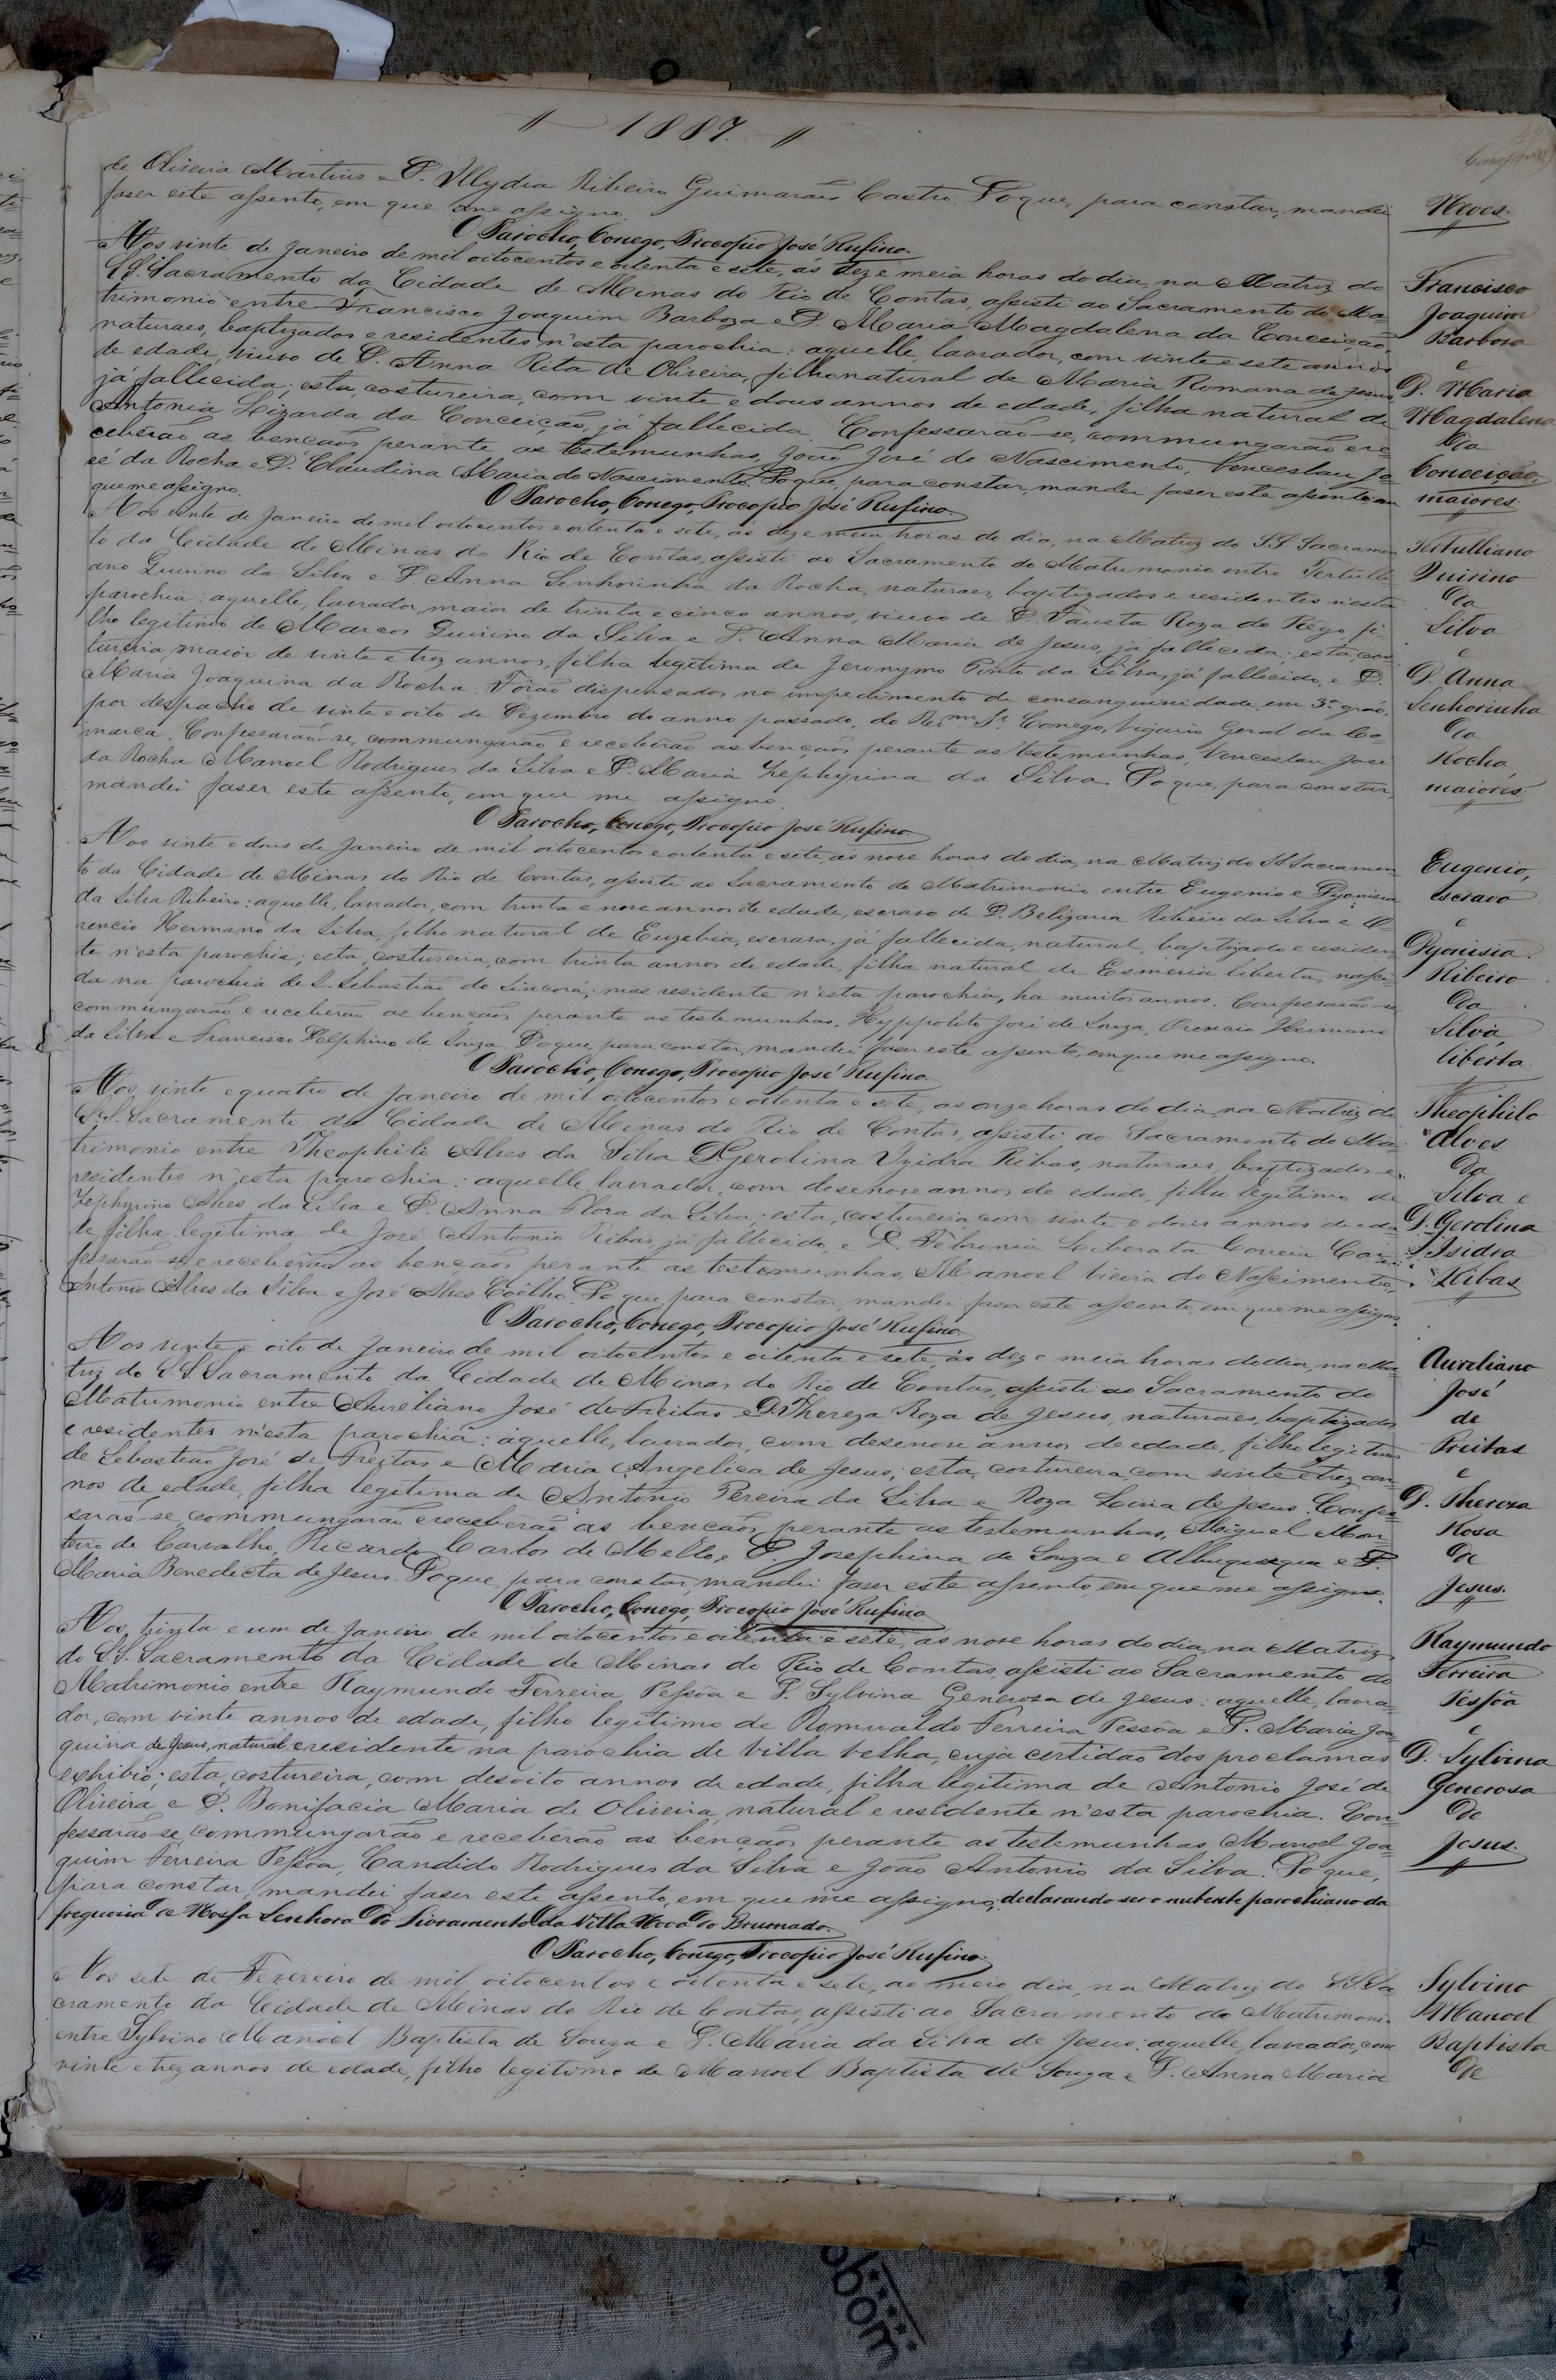 // — 1887. — //
de Oliveira Martins e D. Ribeiro Guimarães Castro. Do que, para constar, mandei
faser este assento, em que me assigno.
Neves.
O Parocho, Conego, Procopio José Rufino.
Aos vinte de Janeiro de mil oitocentos e oitenta e sete, ás dez e meia horas do dia, na Matriz do
SS. Sacramento da Cidade de Minas do Rio de Contas, assisti ao Sacramento do Ma-
trimonio entre Francisco Joaquim Barboza e D. Maria Magdalena da Conceição,
naturaes, baptizados e residentes n'esta parochia: aquelle, lavrador, com vinte e sete annos
de edade, viuvo de D. Anna Rita de Oliveira, filho natural de Maria Romana de Jesus,
já fallecida; esta, costureira, com vinte e dous annos de edade, filha natural de
Antonia Lizarda da Conceição, já fallecida. Confessarão-se, commungarão e re-
ceberão as bençãos perante as testemunhas, João José do Nascimento, Vencesláu Jo-
sé da Rocha e D. Claudina Maria do Nascimento. Do que, para constar, mandei faser este assento, em
que me assigno.
Francisco
Joaquim
Barbosa
e
D. Maria
Magdalena
da
Conceição,
maiores
O Parocho, Conego, Procopio José Rufino.
Aos vinte de Janeiro de mil oitocentos e oitenta e sete, ás dez e meia horas do dia, na Matriz do S.S. Sacramen
to da Cidade de Minas do Rio de Contas, assisti ao Sacramento do Matrimonio entre Tertulli
ano Quirino da Silva e D. Anna Senhorinha da Rocha, naturaes, baptizados e residentes n'esta
parochia: aquelle, lavrador, maior de trinta e cinco annos, viuvo de D. Fausta Roza do Rego, fi-
lho legitimo de Marcos Quirino da Silva e D. Anna Maria de Jesus, já fallecida; esta, cos
tureira, maior de vinte e trez annos, filha legitima de Jeronymo Pinto da Silva, já fallecido, e D.
Maria Joaquina da Rocha. Forão dispensados no impedimento de consanguinidade em 3º gráo,
por despacho de vinte e oito de Dezembro do anno passado, do Rev.mo Sr. Conego, Vigario Geral da Co-
marca. Confessarão-se, commungarão e receberão as bençãos perante as testemunhas, Vencesláu José
da Rocha Manoel Rodrigues da Silva e D. Maria Zephyrina da Silva. Do que, para constar,
mandei faser este assento, em que me assigno.
Tertulliano
Quirino
da
Silva
e
D. Anna
Senhorinha
da
Rocha,
maiores
O Parocho, Conego, Procopio José Rufino
Aos vinte e dous de Janeiro de mil oitocentos e oitenta e sete, ás nove horas do dia, na Matriz do SS. Sacramen
to da Cidade de Minas do Rio de Contas, assisti ao Sacramento do Matrimonio entre Eugenio e Dyonisia
da Silva Ribeiro: aquelle, lavrador, com trinta e nove annos de edade, escravo de D. Belizaria Ribeiro da Silva e O-
rencio Hermano da Silva, filho natural de Euzebia, escrava, já fallecida, natural, baptizado e residen
te n'esta parochia; esta, costureira, com trinta annos de edade, filha natural de Esmeria liberta, nasci-
da na parochia de S. Sebastião do Sincorá; mas residente n'esta parochia, ha muitos annos. Confessarão-se
commungarão e receberão as bençãos perante as testemunhas, Hyppolito José de Souza, Orencio Hermano
da Silva e Francisco Delphino de Souza. Do que, para constar, mandei faser este assento, em que me assigno.
Eugenio,
escravo
e
Dyonisia
Ribeiro
da
Silva,
liberta.
O Parocho, Conego, Procopio José Rufino.
Aos vinte e quatro de Janeiro de mil oitocentos e oitenta e sete, as onze horas do dia, na Matriz do
S.S. Sacramento da Cidade de Minas do Rio de Contas, assisti ao Sacramento do Ma-
trimonio entre Theophilo Alves da Silva D. Gerolina Izidra Ribas, naturaes, baptizados e
residentes n'esta parochia: aquelle lavrador, com desenove annos de edade, filho legitimo de
Zephyrino Alves da Silva e D. Anna Flora da Silva; esta, costureira, com vinte e dous annos de eda
de filha legitima de José Antonio Ribas, já fallecido, e D. Febronia Liberata Correia. Con-
fessarão-se e receberão as bençãos perante as testemunhas, Manoel Vieira do Nascimento,
Antonio Alves da Silva e José Alves Coêlho. Do que, para constar, mandei faser este assento, em que me assigno.
Theophilo
Alves
da
Silva e
D. Gerolina
Isidra
Ribas
O Parocho, Conego, Procopio José Rufino.
Aos vinte e oito de Janeiro de mil oitocentos e oitenta e sete, ás dez e meia horas do dia, na Ma-
triz do S.S. Sacramento da Cidade de Minas do Rio de Contas, assisti ao Sacramento do
Matrimonio entre Aureliano José de Freitas e D. Thereza Roza de Jesus, naturaes, baptizados
e residentes n'esta parochia: aquelle, lavrador, com desenove annos de edade, filho legitimo
de Sebastião José de Freitas e Maria Angelica de Jesus; esta, costureira, com vinte e trez an-
nos de edade, filha legitima de Antonio Pereira da Silva e Roza Lina de Jesus. Confes-
sarão-se, commungarão e receberão as bençãos perante as testemunhas, Miguel Mon
teiro de Carvalho, Ricardo Carlos de Mello, e D. Josephina de Souza e Albuquerque e D.
Maria Benedicta de Jesus. Do que, para constar, mandei faser este assento, em que me assigno.
Aureliano
José
de
Freitas
e
D. Theresa
Rosa
de
Jesus.
O Parocho, Conego, Procopio José Rufino
Aos trinta e um de Janeiro de mil oitocentos e oitenta e sete, as nove horas do dia, na Matriz
do S.S. Sacramento da Cidade de Minas do Rio de Contas, assisti ao Sacramento do
Matrimonio entre Raymundo Ferreira Pessôa e D. Sylvina Generosa de Jesus: aquelle, lavra-
dor, com vinte annos de edade, filho legitimo de Romualdo Ferreira Pessôa e D. Maria Joa-
quina de Jesus, natural e residente na parochia de Villa Velha, cuja certidão dos proclamas
exhibio; esta, costureira, com desoito annos de edade, filha legitima de Antonio José de
Oliveira e D. Bonifacia Maria de Oliveira, natural e residente n'esta parochia. Con-
fessarão-se, commungarão e receberão as bençãos perante as testemunhas, Manoel Joa-
quim Ferreira Pessôa, Candido Rodrigues da Silva e João Antonio da Silva. Do que,
para constar, mandei faser este assento, em que me assigno; declarando ser o nubente parochiano da
freguesia de Nossa Senhora do Livramento da Villa Nova do Brumado.
Raymundo
Ferreira
Pessôa
e
D. Sylvina
Generosa
de
Jesus.
O Parocho, Conego, Procopio José Rufino.
Aos sete de Fevereiro de mil oitocentos e oitenta e sete, ao meio dia, na Matriz do S.S. Sa
cramento da Cidade de Minas do Rio de Contas, assisti ao Sacramento do Matrimonio
entre Sylvino Manoel Baptista de Souza e D. Maria da Silva de Jesus: aquelle, lavrador, com
vinte e trez annos de edade, filho legitimo de Manoel Baptista de Souza e D. Anna Maria
Sylvino
Manoel
Baptista
de